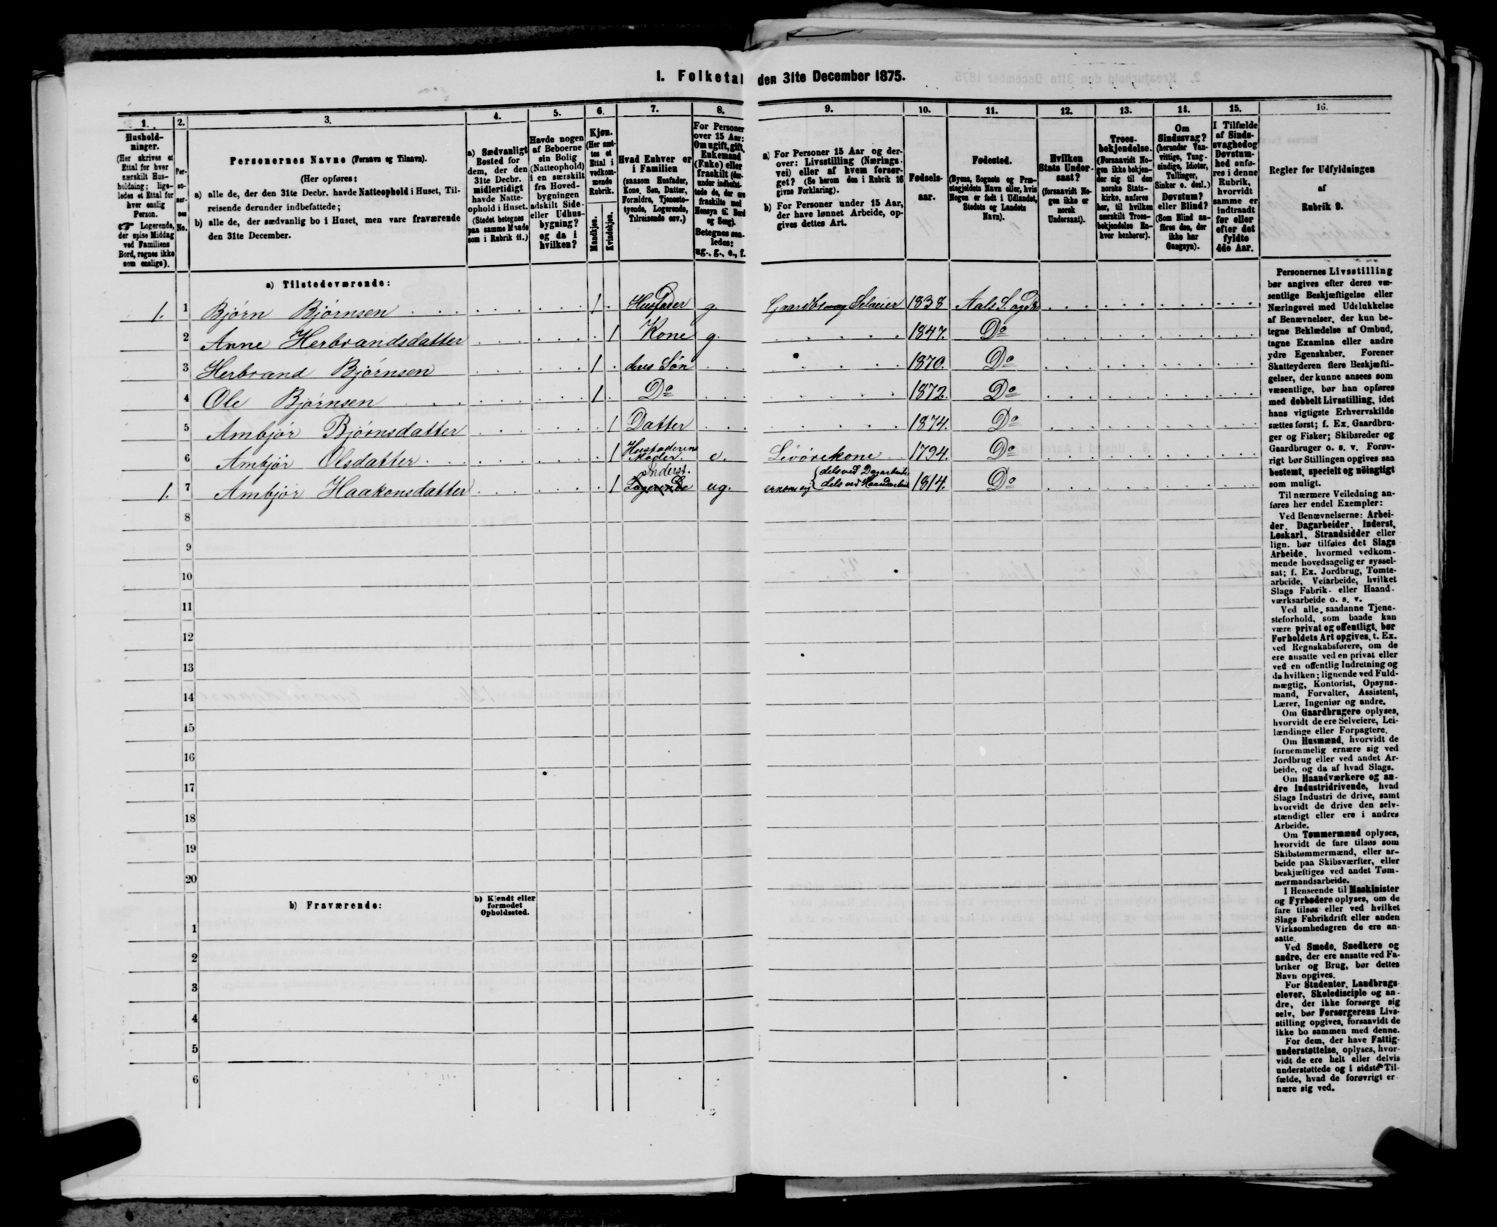 I. Folketal den 31te December 1875.
1. 2. 3. 4. 5. 6. 7. 8. 9. 10. 11. 12. 13. 14. 15. 16.
Hushold-
ninger.
(Her skrives et
Ettal for hver
særskilt Hus-
holdning; lige-
ledes et Ettal for
hver enslig
Person.
☞ Logerende,
der spise Middag
ved Familiens
Bord, regnes ikke
som enslige).
Per-
so-
ner-
nes
No.
Personernes Navne (Fornavn og Tilnavn).
(Her opføres:
a) alle de, der den 31te Decbr. havde Natteophold i Huset, Til-
reisende derunder indbefattede;
b) alle de, der sædvanlig bo i Huset, men vare fraværende
den 31te December.
a) Sædvanligt
Bosted for
dem, der den
31te Decbr.
midlertidigt
havde Natte-
ophold i Huset.
(Stedet betegnes
paa samme Maade
som i Rubrik 11.)
Havde nogen
af Beboerne
sin Bolig
(Natteophold)
i en særskilt
fra Hoved-
bygningen
adskilt Side-
eller Udhus-
bygning?
og da i
hvilken?
Kjøn.
(Her sæt-
tes et
Ettal i
vedkom-
mende
Rubrik.
Mandkjøn.
Kvindekjøn.
Hvad Enhver er
i Familien
(saasom Husfader,
Kone, Søn, Datter,
Forældre, Tjeneste-
tyende, Logerende,
Tilreisende osv.)
For Personer
over 15 Aar:
Om ugift, gift,
Enkemand
(Enke) eller
fraskilt
Betegnes saa-
ledes:
ug., g., e., f.
a) For Personer 15 Aar og der-
over: Livsstilling (Nærings-
vei) eller af hvem forsør-
get? (Se herom den i Rubrik 16
givne Forklaring).
b) For Personer under 15 Aar,
der have lønnet Arbeide, op-
gives dettes Art.
Fødsels-
aar.
Fødested.
(Byens, Sognets og Præ-
stegjeldets Navn eller, hvis
Nogen er født i Udlandet,
Stedets og Landets
Navn).
Hvilken
Stats Under-
saat?
(forsaavidt No-
gen ikke er
norsk
Undersaat).
Troes-
bekjendelse.
(Forsaavidt No-
gen ikke bekjen-
der sig til den
norske Stats-
kirke, anføres
her, til hvilken
særskilt Troes-
bekjendelse En-
hver henhører).
Om
Sindssvag?
(herunder Van-
vittige, Tung-
sindige, Idioter,
Tullinger,
Sinker o. desl.)
Døvstum?
eller Blind?
(Som Blind an-
føres den, der
ikke har
Gangsyn).
I Tilfælde
af Sinds-
svaghed og
Døvstum-
hed anfø-
res i denne
Rubrik,
hvorvidt
samme er
indtraadt
før eller
efter det
fyldte
4de Aar.
Regler for Udfyldningen
af
Rubrik 9.
a) Tilstedeværende:
1. 1 Bjørn Bjørnsen 1 Husfader g. Gaardbrug Selveier 1838 Aals Sogn
2 Anne Herbrandsdatter 1 Kone g. 1847. Do
3 Herbrand Bjørnsen 1 deres Søn 1870. Do
4 Ole Bjørnsen 1 Do 1872. Do
5 Ambjør Bjørnsdatter 1 Datter 1874. Do
6 Ambjør Olsdatter 1 Husfaderens Moder. e. Livørekone 1794. Do
1. 7 Ambjør Haakonsdatter 1 Inderst. Logerende ug. ernærer sig dels ved Dagarbeide dels ved Haandarbeid 1814. Do
8
9
10
11
12
13
14
15
16
17
18
19
20
b) Fraværende:
b) Kjendt eller
formodet
Opholdssted.
1
2
3
4
5
6
Personernes Livsstilling
bør angives efter deres væ-
sentlige Beskjæftigelse eller
Næringsvei med Udelukkelse
af Benævnelser, der kun be-
tegne Beklædelse af Ombud,
tagne Examina eller andre
ydre Egenskaber. Forener
Skatteyderen flere Beskjæfti-
gelser, der kunne ansees som
væsentlige, bør han opføres
med dobbelt Livsstilling, idet
hans vigtigste Erhvervskilde
sættes først; f. Ex. Gaardbru-
ger og Fisker; Skibsreder og
Gaardbruger o. s. v. Forøv-
rigt bør Stillingen opgives saa
bestemt, specielt og nøiagtigt
som muligt.
Til nærmere Veiledning an-
føres her endel Exempler:
Ved Benævnelserne: Arbei-
der, Dagarbeider, Inderst,
Løskarl, Strandsidder eller
lign. bør tilføies det Slags
Arbeide, hvormed vedkom-
mende hovedsagelig er syssel-
sat; f. Ex. Jordbrug, Tomte-
arbeide, Veiarbeide, hvilket
Slags Fabrik- eller Haand-
værksarbeide o. s. v.
Ved alle saadanne Tjene-
steforhold, som baade kan
være privat og offentligt, bør
Forholdets Art opgives, t. Ex.
ved Regnskabsførere, om de
ere ansatte ved en privat eller
ved en offentlig Indretning og
da hvilken; lignende ved Fuld-
mægtig, Kontorist, Opsyns-
mand, Forvalter, Assistent,
Lærer, Ingeniør og andre.
Om Gaardbrugere oplyses,
hvorvidt de ere Selveiere, Lei-
lændinge eller Forpagtere.
Om Husmænd, hvorvidt de
fornemmelig ernære sig ved
Jordbrug eller ved andet Ar-
beide, og da af hvad Slags.
Om Haandværkere og an-
dre Industridrivende, hvad
Slags Industri de drive, samt
hvorvidt de drive den selv-
stændigt eller ere i andres
Arbeide.
Om Tømmermænd oplyses,
hvorvidt de fare tilsøs som
Skibstømmermænd, eller ar-
beide paa Skibsværfter, eller
beskjæftiges ved andet Tøm-
mermandsarbeide.
I Henseende til Maskinister
og Fyrbødere oplyses, om de
fare tilsøs eller ved hvilket
Slags Fabrikdrift eller anden
Virksomhedsgren de ere an-
satte.
Ved Smede, Snedkere og
andre, der ere ansatte ved Fa-
briker og Brug, bør dettes
Navn opgives.
For Studenter, Landbrugs-
elever, Skoledisciple og an-
dre, der ikke forsørge sig
selv, bør Forsørgerens Livs-
stilling opgives, forsaavidt de
ikke bo sammen med denne.
For dem, der have Fattig-
understøttelse, oplyses, hvor-
vidt de ere helt eller delvis
understøttede og i sidste Til-
fælde, hvad de forøvrigt er-
nære sig ved.